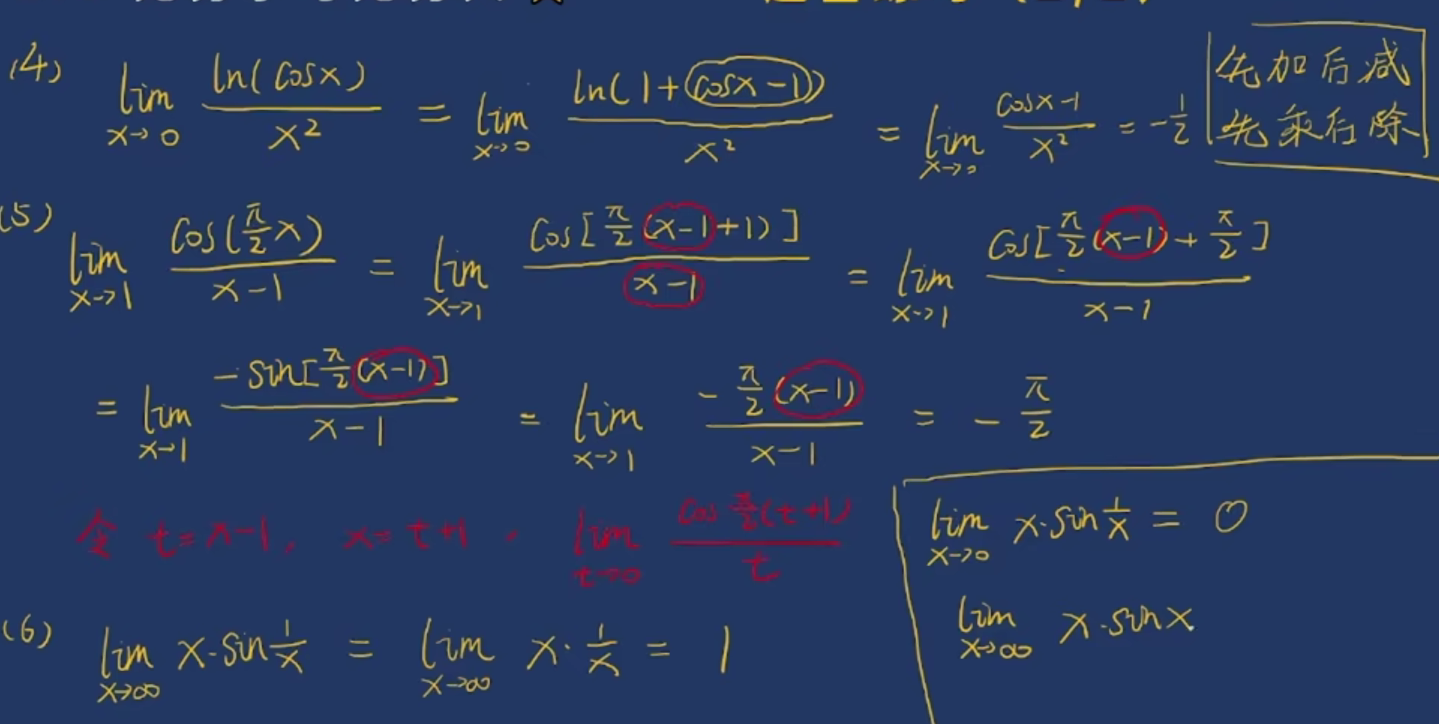 (4) lim x→0 ln(cosx)/x² = lim x→0 ln(1+(cosx-1))/x² = lim x→0 cosx-1/x² = -1/2
先加后减
先乘后除
(5) lim x→1 cos(π/2 x)/x-1 = lim x→1 cos[π/2(x-1+1)]/x-1 = lim x→1 cos[π/2(x-1)+π/2]/x-1
= lim x→1 -sin[π/2(x-1)]/x-1 = lim x→1 -π/2(x-1)/x-1 = -π/2
令 t=x-1, x=t+1, lim t→0 cos π/2(t+1)/t
lim x→0 x·sin 1/x = 0
lim x→∞ x·sinx
(6) lim x→∞ x·sin 1/x = lim x→∞ x·1/x = 1